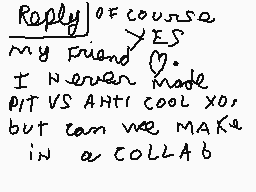 Reply OF COURSE
MY FRIEND YES
I NEVER MADE
PIT VS ANTI COOL XD,
but can we MAKE
iN a COLLAb